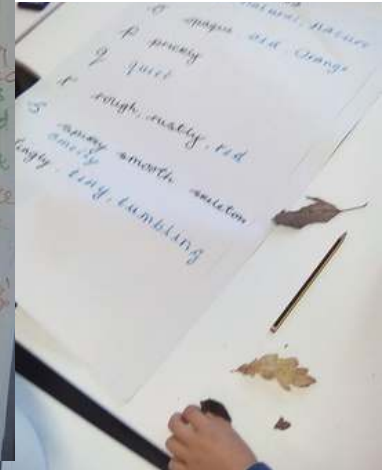 natural, nature
O opaque old Orange
P prickly
q quiet
r rough, rustly, red
S spikey smooth skeleton
smelly
tingly, tiny, tumbling